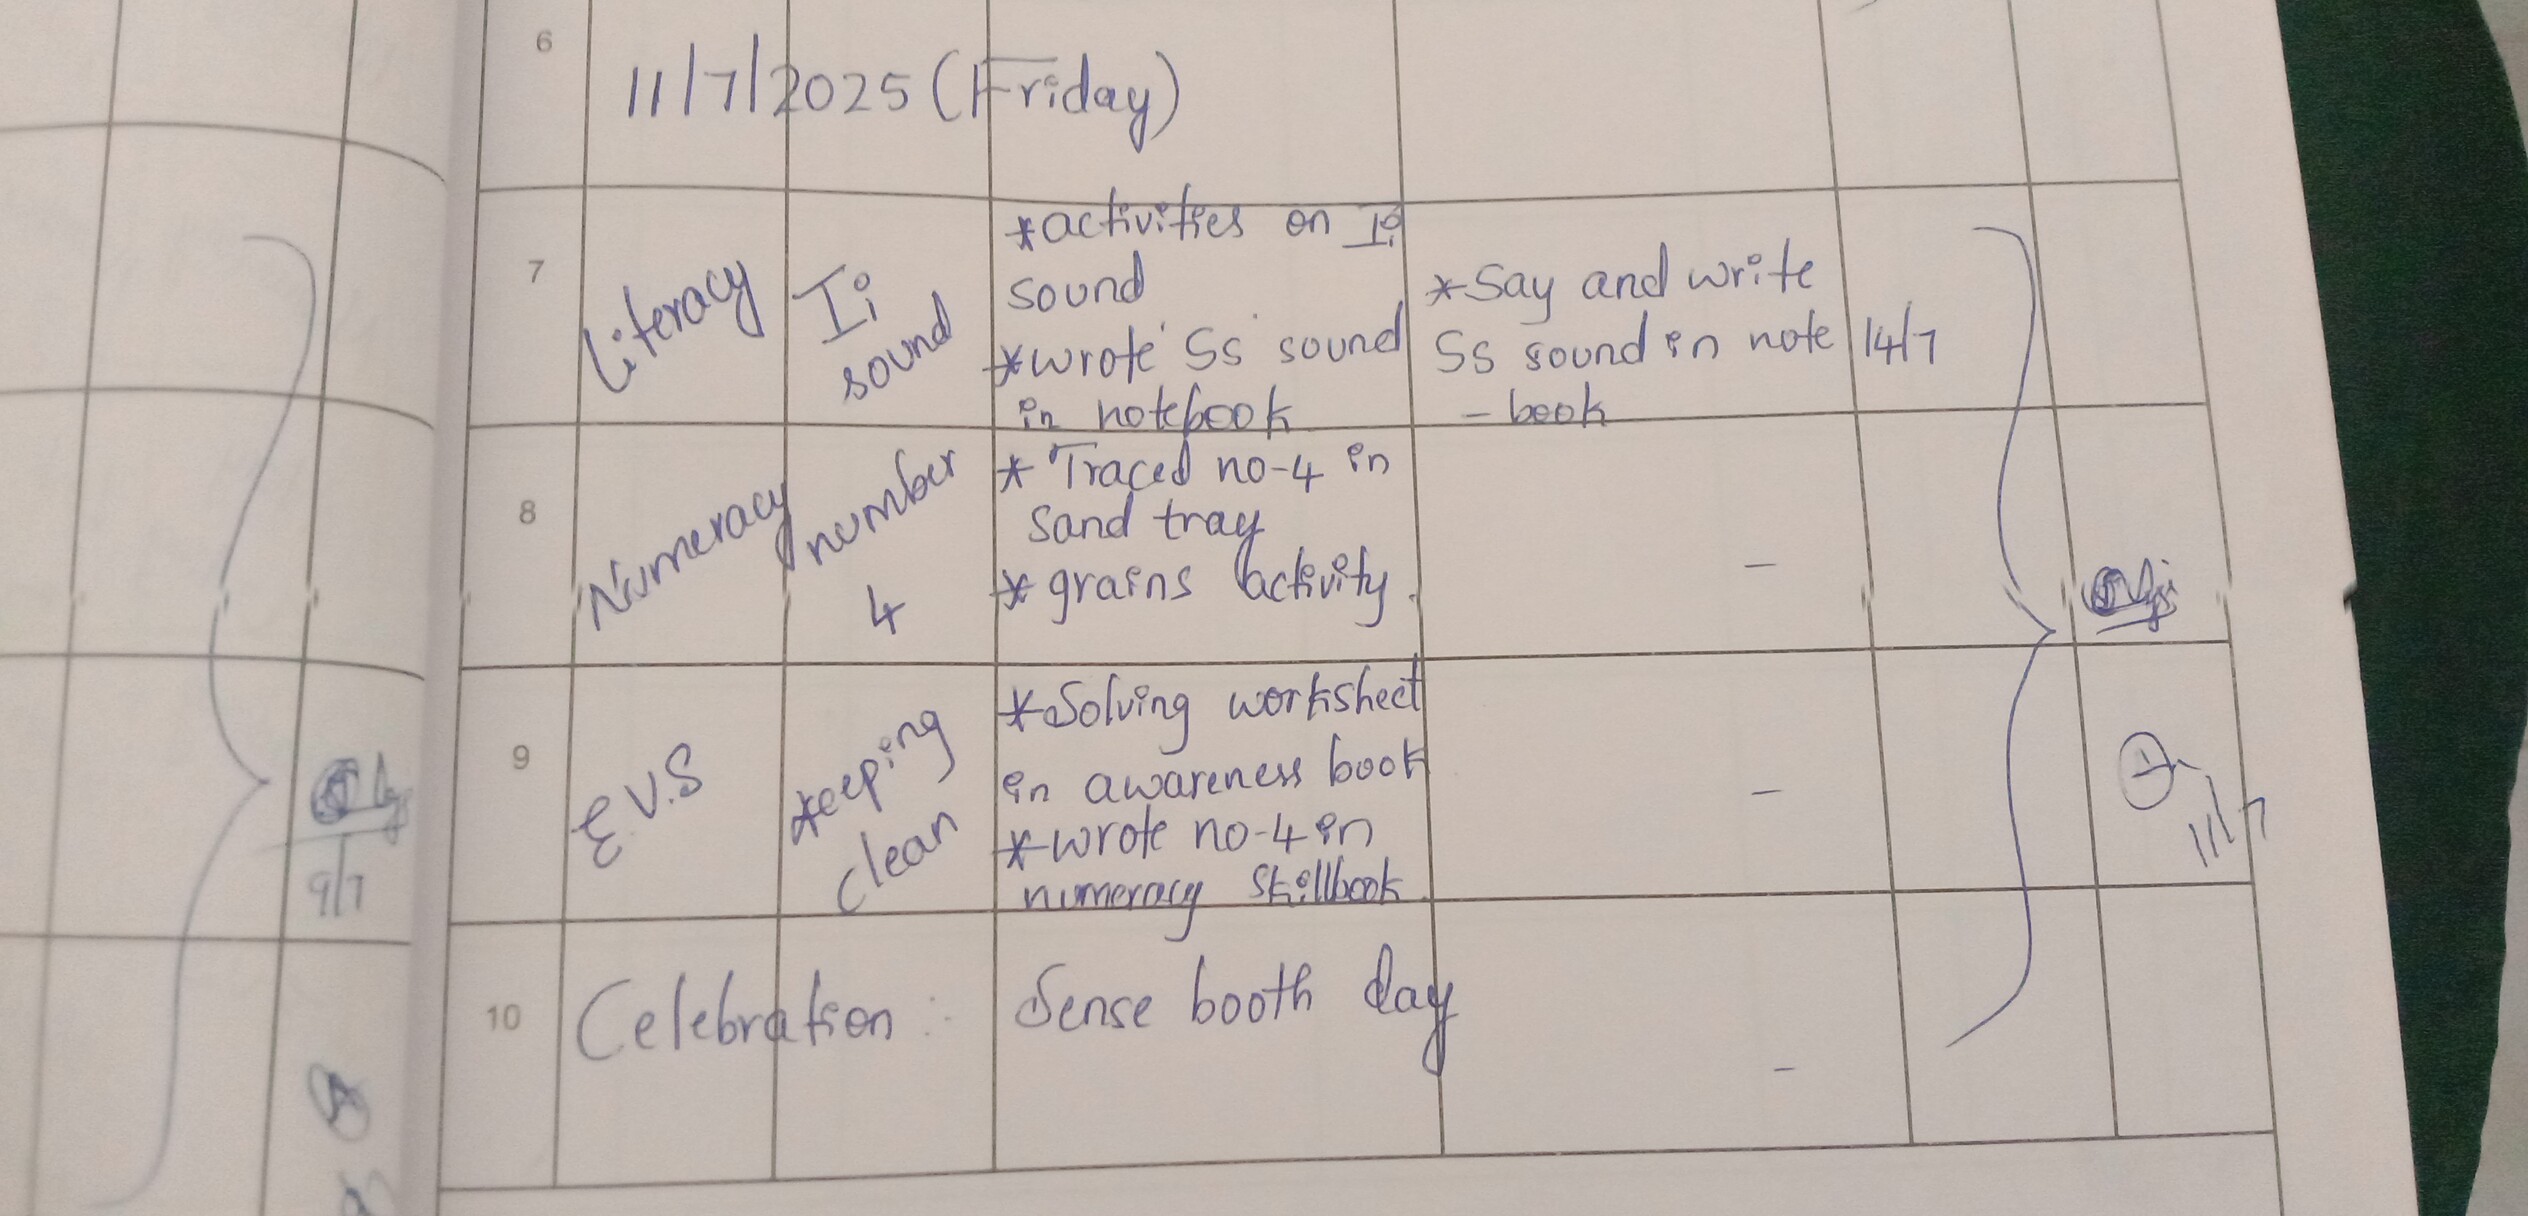 6
11/7/2025 (Friday)
7
Literacy
Ii
sound
*activities on Ii
sound
*wrote Ss sound
in notebook
*Say and write
Ss sound in note
- book
14/7
8
Numeracy
number
4
* Traced no-4 in
sand tray
* grains activity.
-
9
E.V.S
keeping
clean
*Solving worksheet
in awareness book
*wrote no-4 in
numeracy skillbook.
-
11/7
9/7
10
Celebration :
Sense booth day
-